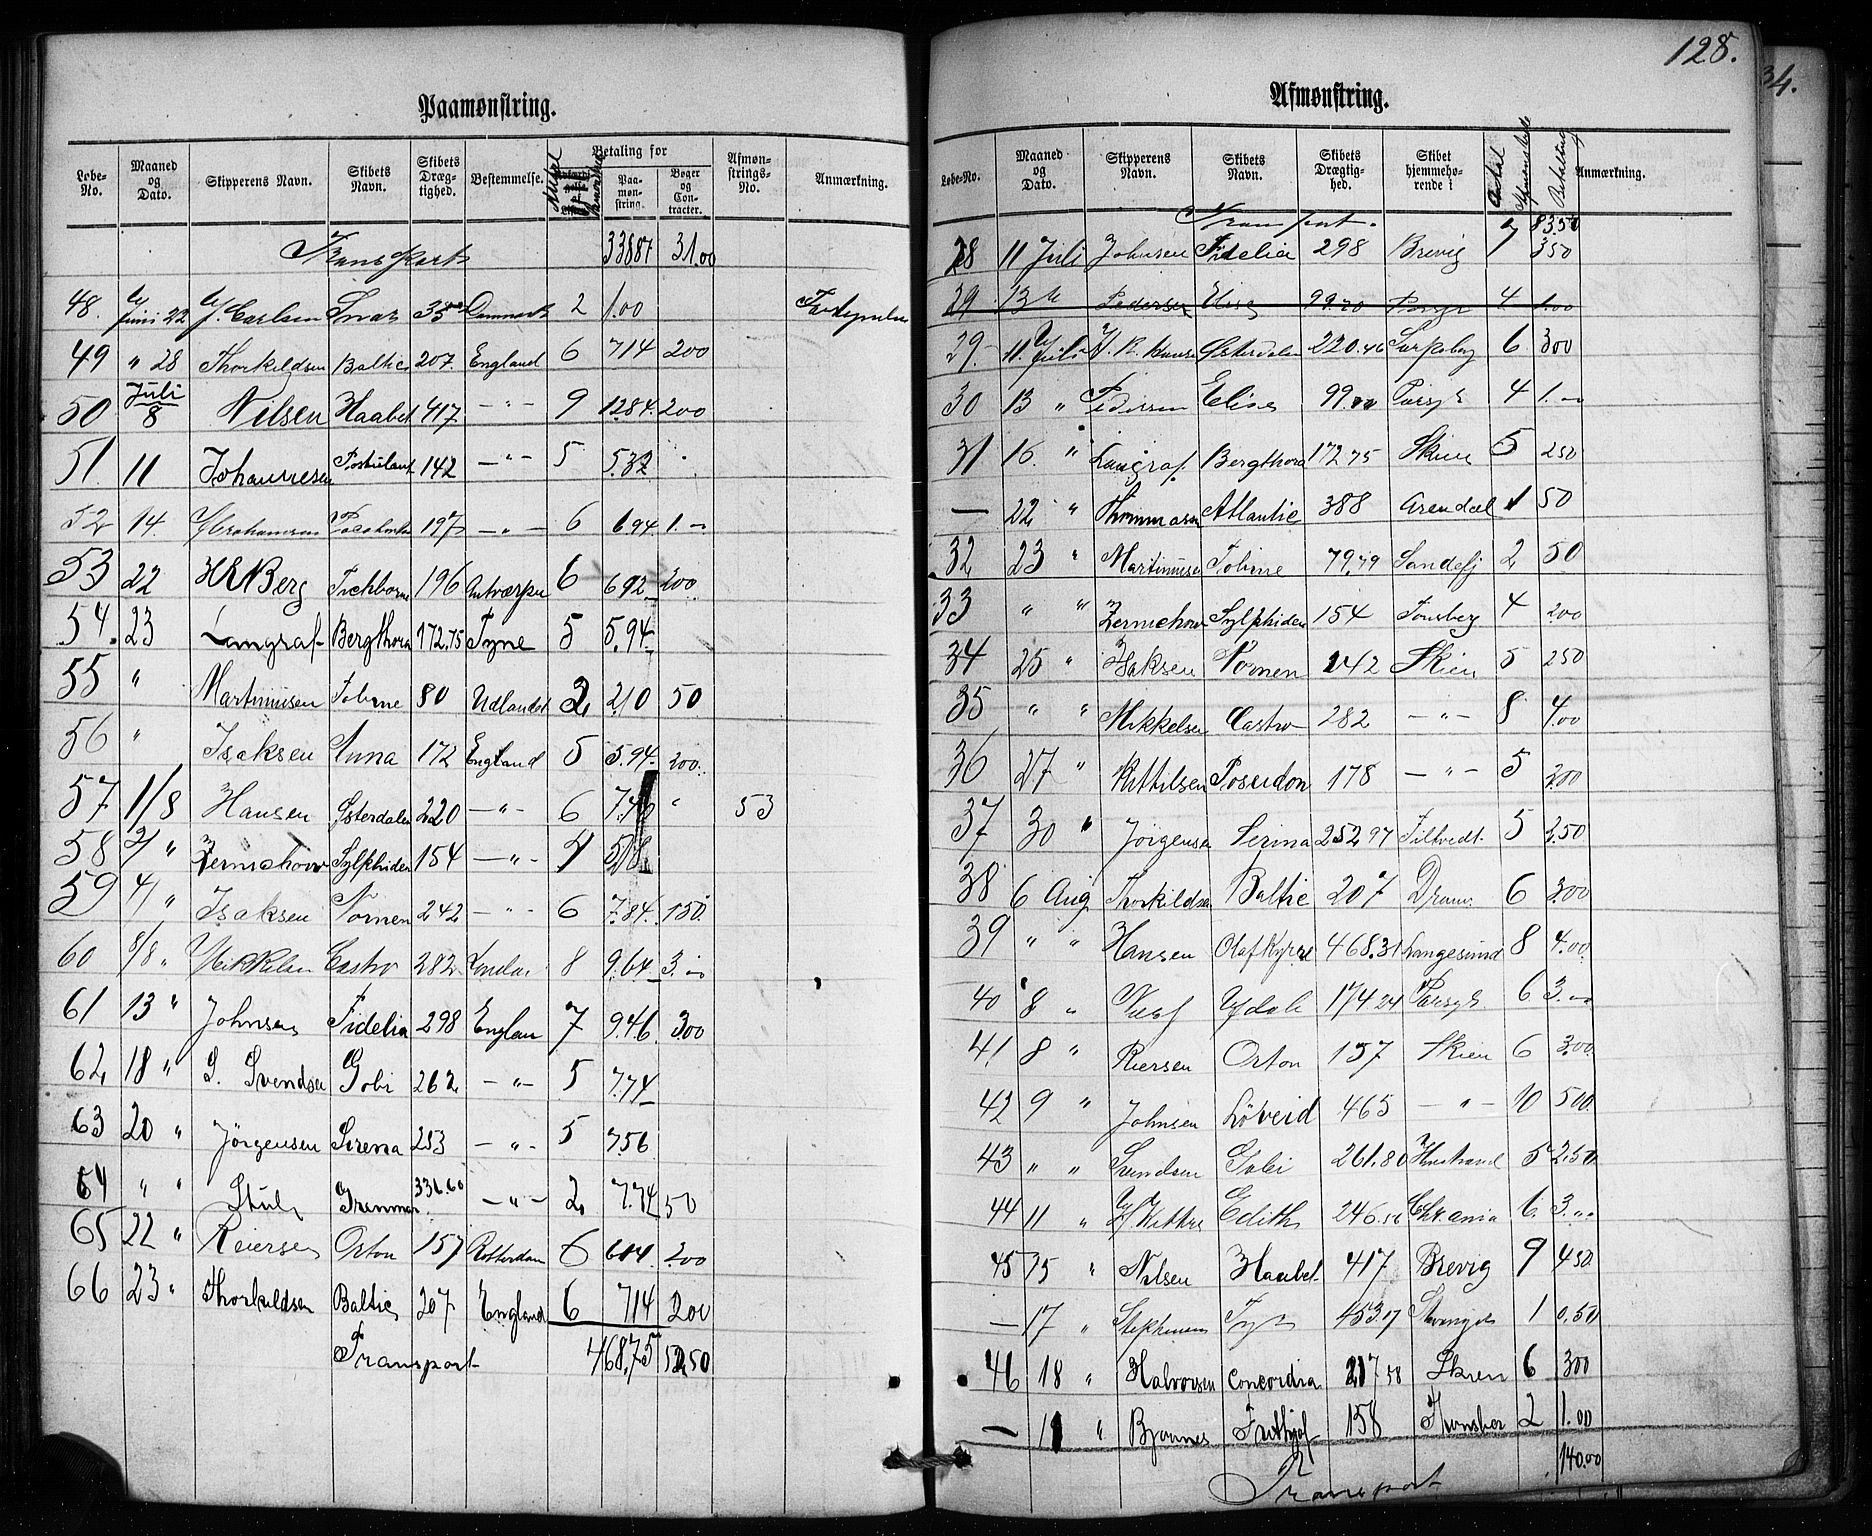 128.
34.
Paamønstring.
Løbe-No. | Maaned og Dato. | Skipperens Navn. | Skibets Navn. | Skibets Drægtighed. | Bestemmelse. | Antal | Betaling for Paamønstring. | Bøger og Contracter. | Afmønstrings-No. | Anmærkning.
Transport 33887 31.00
48. Juni 22 Carlsen 2 1.00
49 " 28 Thorkildsen Baltic 207. England 6 714 200
50 Juli 8 Nilsen Haabet 417 — " — 9 1284. 200
51. 11 Johannesen 142 — " — 5 5.32
52 14. Abrahamsen 197 — " — 6 6.94. 1. —
53 22 Berg Tichborne 196 Antwerpen 6 692 200
54. 23 Langraf Bergthora 172.75 Tyne 5 5.94
55 " Martinnisen Tobine 80 Udlandet 2 210 50
56 " Isaksen Anna 172 England 5 5.94. 200.
57 1/8 Hansen Østerdalen 220 — " — 6 " 53
58 2/ " Zernichow Sylphiden 154 — " — 4
59 4/ " Isaksen Nornen 242 — " — 6 7.84. 150.
60 8/8 " Mikkelsen Castro 282 8 9.64 3. —
61 13 " Johnsen Fidelia 298 7 9.46 300
62 18 " G. Svendsen Gobi 262 — " — 5 7.74
63 20 " Jörgensen Serena 253 — " — 5 7.56
64 " " 336.60 — " — 2 7.74 50
65 22 " Reiersen Orton 157 Rotterdam 6 614. 200
66 23 " Thorkildsen Baltic 207 England 6 714 200
Transport 468.75 5250
Afmønstring.
Løbe-No. | Maaned og Dato. | Skipperens Navn. | Skibets Navn. | Skibets Drægtighed. | Skibet hjemmehørende i | Antal | Betaling | Anmærkning.
Transport. 83.50
28 11 Juli Johnsen Fidelia 298 Brevig 7 350
29 13 Pedersen Elise 99.70 Porsgr 4 1.00
29. 11 Juli Østerdalen 220.46 Sarpsborg 6 300
30 13 " Pedersen Elise 99.70 Porsgr 4 1. —
31 16 " Langraf. Bergthora 172 75 Skien 5 250
— 22 " Thommasen Atlantic 388 Arendal 1 50
32 23 " Martinnisen Tobine 79.79 Sandefj 2 50
33 " " Zernichow Sylphiden 154 Tønsberg 4 200
34 25 " Isaksen Nornen 242 Skien 5 250
35 " " Mikkelsen Castro 282 — " — 8 4.00
36 27 " Kittilsen Poseidon 178 — " — 5 200
37 30 " Jørgensen Serina 252 97 Filtvedt 5 2.50
38 6 Aug Thorkildsen Baltic 207 Dram. 6 3.00
39 " " Hansen Olaf Kyrre 468.31 Langesund 8 4.00
40 8 " Ydale 174 24 Porsgr 6 3. —
41 8 " Riersen Orton 157 Skien 6 3.00
42 9 " Johnsen Löveid 465 — " — 10 500
43 " " Svendsen Gobi 261.80 5 2.50
44 11 " Edith 246.56 Chrania 6 3. "
45 15 " Nilsen Haabet. 417 Brevig 9 450
— 17 " 453.17 1 0.50
46 18 " Halvorsen Concordia 217 58 Skien 6 300
— " Bjønnes Frithjof 158 Thønsber 2 1.00
140.00
Transport